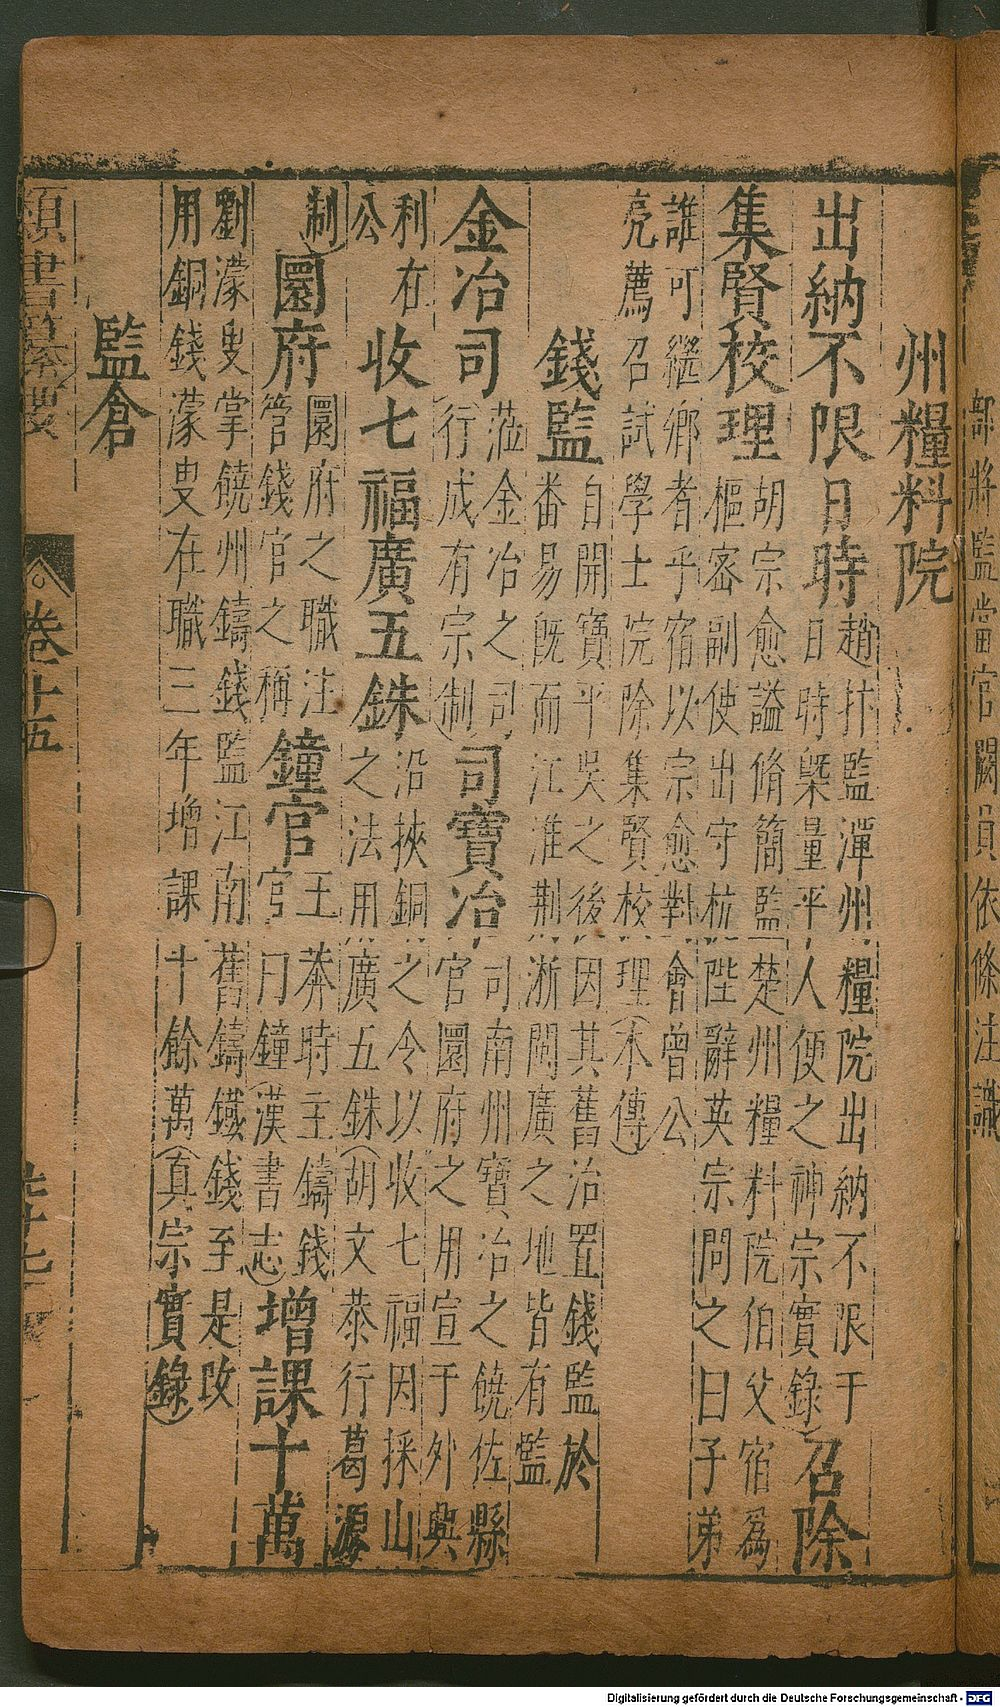 部將監當官闕員依條注識
州糧料院
出納不限日時
趙抃監潭州糧院出納不限于
日時槩量平人便之神宗實錄
召除
集賢校理
胡宗愈謚脩簡監楚州糧料院伯父宿爲
樞密副使出守杭陛辭英宗問之曰子弟
誰可繼鄉者乎宿以宗愈對會曾公
亮薦召試學士院除集賢校理(本傳
錢監
自開寶平吳之後因其舊冶置錢監於
番易旣而江淮荆浙閩廣之地皆有監
金冶司
蒞金冶之司
行成有宗制
司寶冶
司南州寶冶之饒佐縣
官圜府之用宣于外與
利在
公
收七福廣五銖
沿挾銅之令以收七福因採山
之法用廣五銖(胡文恭行葛源
制
圜府
圜府之職注
管錢官之稱
鐘官
王莽時主鑄錢
官曰鐘(漢書志
增課十萬
劉濛叟掌饒州鑄錢監江南舊鑄鐵錢至是改
用銅錢濛叟在職三年增課十餘萬(真宗實錄
監倉
類書
卷十五